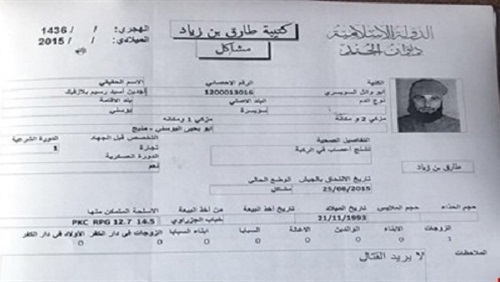 الدولة الإسلامية كتيبة طارق بن زياد الهجري: / / 1436
ديوان الجند مشاكل الميلادي: / / 2015
الكنية الرقم الاحصائي الاسم الحقيقي
ابو وائل السويسري 1200013016 أسيد
نوع الدم البلد الاصلي بلد الاقامة
سويسرة بوسني
مزكي 2 و مكانه مزكي 1 و مكانه
ابو يحيى البوسني - منبج
التفاصيل الصحية التخصص قبل الجهاد الدورة الشرعية
تشنج أعصاب في الركبة تجارة 1
الدورة العسكرية
نعم
طارق بن زياد
تاريخ الالتحاق بالجيش الوضع الحالي
25/08/2015 مشاكل
حجم الحذاء حجم الملابس تاريخ الميلاد تاريخ أخذ البيعة من أخذ البيعة الاسلحة المتمكن منها
21/11/1993 خباب الجزراوي PKC RPG 12.7 14.5
الزوجات الابناء الوالدين الاعالة السبايا ابناء السبايا الزوجات في دار الكفر الأولاد في دار الكفر
1 0 0 0 0 0 0 0
الملاحظات لا يريد القتال